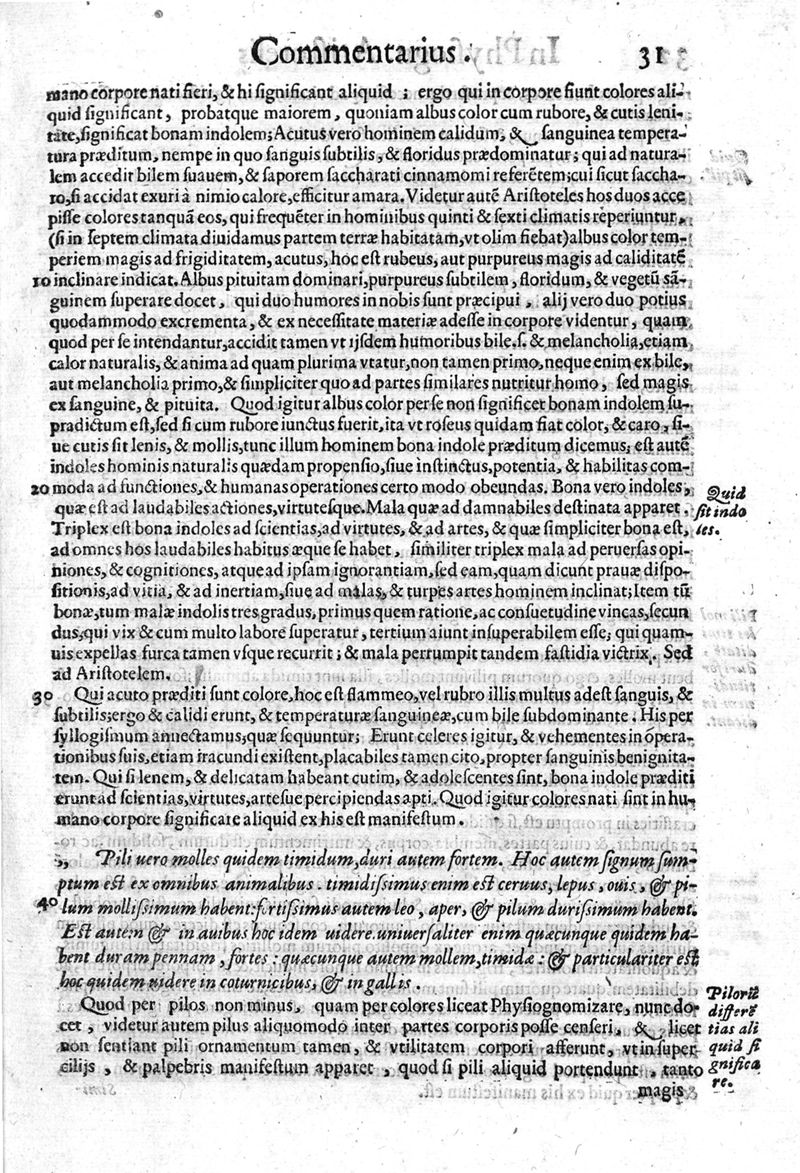 Commentarius. 31
mano corpore nati fieri, & hi significant aliquid ; ergo qui in corpore fiunt colores ali-
quid significant, probatque maiorem, quoniam albus color cum rubore, & cutis leni-
tate, significat bonam indolem; Acutus vero hominem calidum, & sanguinea tempera-
tura præditum, nempe in quo sanguis subtilis, & floridus prædominatur; qui ad natura-
lem accedit bilem suauem, & saporem saccharati cinnamomi referẽtem; cui sicut saccha-
ro, si accidat exuri à nimio calore, efficitur amara. Videtur autẽ Aristoteles hos duos acce
pisse colores tanquã eos, qui frequẽter in hominibus quinti & sexti climatis reperiuntur,
(si in septem climata diuidamus partem terræ habitatam, vt olim fiebat) albus color tem-
periem magis ad frigiditatem, acutus, hoc est rubeus, aut purpureus magis ad caliditatẽ
10 inclinare indicat. Albus pituitam dominari, purpureus subtilem, floridum, & vegetũ sã-
guinem superare docet, qui duo humores in nobis sunt præcipui, alij vero duo potius
quodammodo excrementa, & ex necessitate materiæ adesse in corpore videntur, quam
quod per se intendantur, accidit tamen vt ijsdem humoribus bile. s. & melancholia, etiam
calor naturalis, & anima ad quam plurima vtatur, non tamen primo, neque enim ex bile,
aut melancholia primo, & simpliciter quo ad partes similares nutritur homo, sed magis
ex sanguine, & pituita. Quod igitur albus color per se non significet bonam indolem su-
pradictum est, sed si cum rubore iunctus fuerit, ita vt roseus quidam fiat color, & caro, si-
ue cutis sit lenis, & mollis, tunc illum hominem bona indole præditum dicemus; est autẽ
indoles hominis naturalis quædam propensio, siue instinctus, potentia, & habilitas com-
20 moda ad functiones, & humanas operationes certo modo obeundas. Bona vero indoles,
quæ est ad laudabiles actiones, virtutesque. Mala quæ ad damnabiles destinata apparet.
Triplex est bona indoles ad scientias, ad virtutes, & ad artes, & quæ simpliciter bona est,
ad omnes hos laudabiles habitus æque se habet, similiter triplex mala ad peruersas opi-
niones, & cognitiones, atque ad ipsam ignorantiam, sed eam, quam dicunt prauæ dispo-
sitionis, ad vitia, & ad inertiam, siue ad malas, & turpes artes hominem inclinat; Item tũ
bonæ, tum malæ indolis tres gradus, primus quem ratione, ac consuetudine vincas, secun
dus, qui vix & cum multo labore superatur, tertium aiunt insuperabilem esse; qui quam-
uis expellas furca tamen vsque recurrit; & mala perrumpit tandem fastidia victrix. Sed
ad Aristotelem.
Quid
sit indo
les.
30 Qui acuto præditi sunt colore, hoc est flammeo, vel rubro illis multus adest sanguis, &
subtilis; ergo & calidi erunt, & temperaturæ sanguineæ, cum bile subdominante. His per
syllogismum annectamus, quæ sequuntur; Erunt celeres igitur, & vehementes in opera-
tionibus suis, etiam iracundi existent, placabiles tamen cito, propter sanguinis benignita-
tem. Qui si lenem, & delicatam habeant cutim, & adolescentes sint, bona indole præditi
erunt ad scientias, virtutes, artesue percipiendas apti. Quod igitur colores nati sint in hu-
mano corpore significare aliquid ex his est manifestum.
„ Pili uero molles quidem timidum, duri autem fortem. Hoc autem signum sum-
ptum est ex omnibus animalibus. timidissimus enim est ceruus, lepus, ouis, & pi-
40 lum mollissimum habent: fortissimus autem leo, aper, & pilum durissimum habent.
Est autem & in auibus hoc idem uidere. uniuersaliter enim quæcunque quidem ha-
bent duram pennam, fortes: quæcunque autem mollem, timidæ: & particulariter est
hoc quidem uidere in coturnicibus, & in gallis.
Quod per pilos non minus, quam per colores liceat Physiognomizare, nunc do-
cet, videtur autem pilus aliquomodo inter partes corporis posse censeri, & licet
non sentiant pili ornamentum tamen, & vtilitatem corpori afferunt, vt in super
cilijs, & palpebris manifestum apparet, quod si pili aliquid portendunt, tanto
magis
Pilorũ
differẽ
tias ali
quid si
gnifica
re.